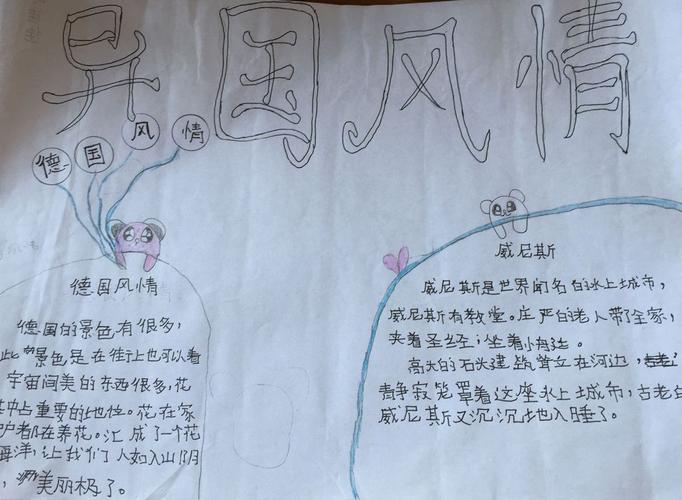 异国风情
德国风情
德国风情
德国的景色有很多,
此 景色是在街上也可以看
宇宙间美的东西很多,花
其中占重要的地位。花在家
户都在养花。汇成了一个花
海洋,让我们人如入山阴
,美丽极了。
威尼斯
威尼斯是世界闻名的水上城市,
威尼斯有教堂。庄严的老人带了全家,
夹着圣经,坐着小舟边。
高大的石头建筑耸立在河边,
静寂笼罩着这座水上城市,古老白
威尼斯又沉沉地入睡了。